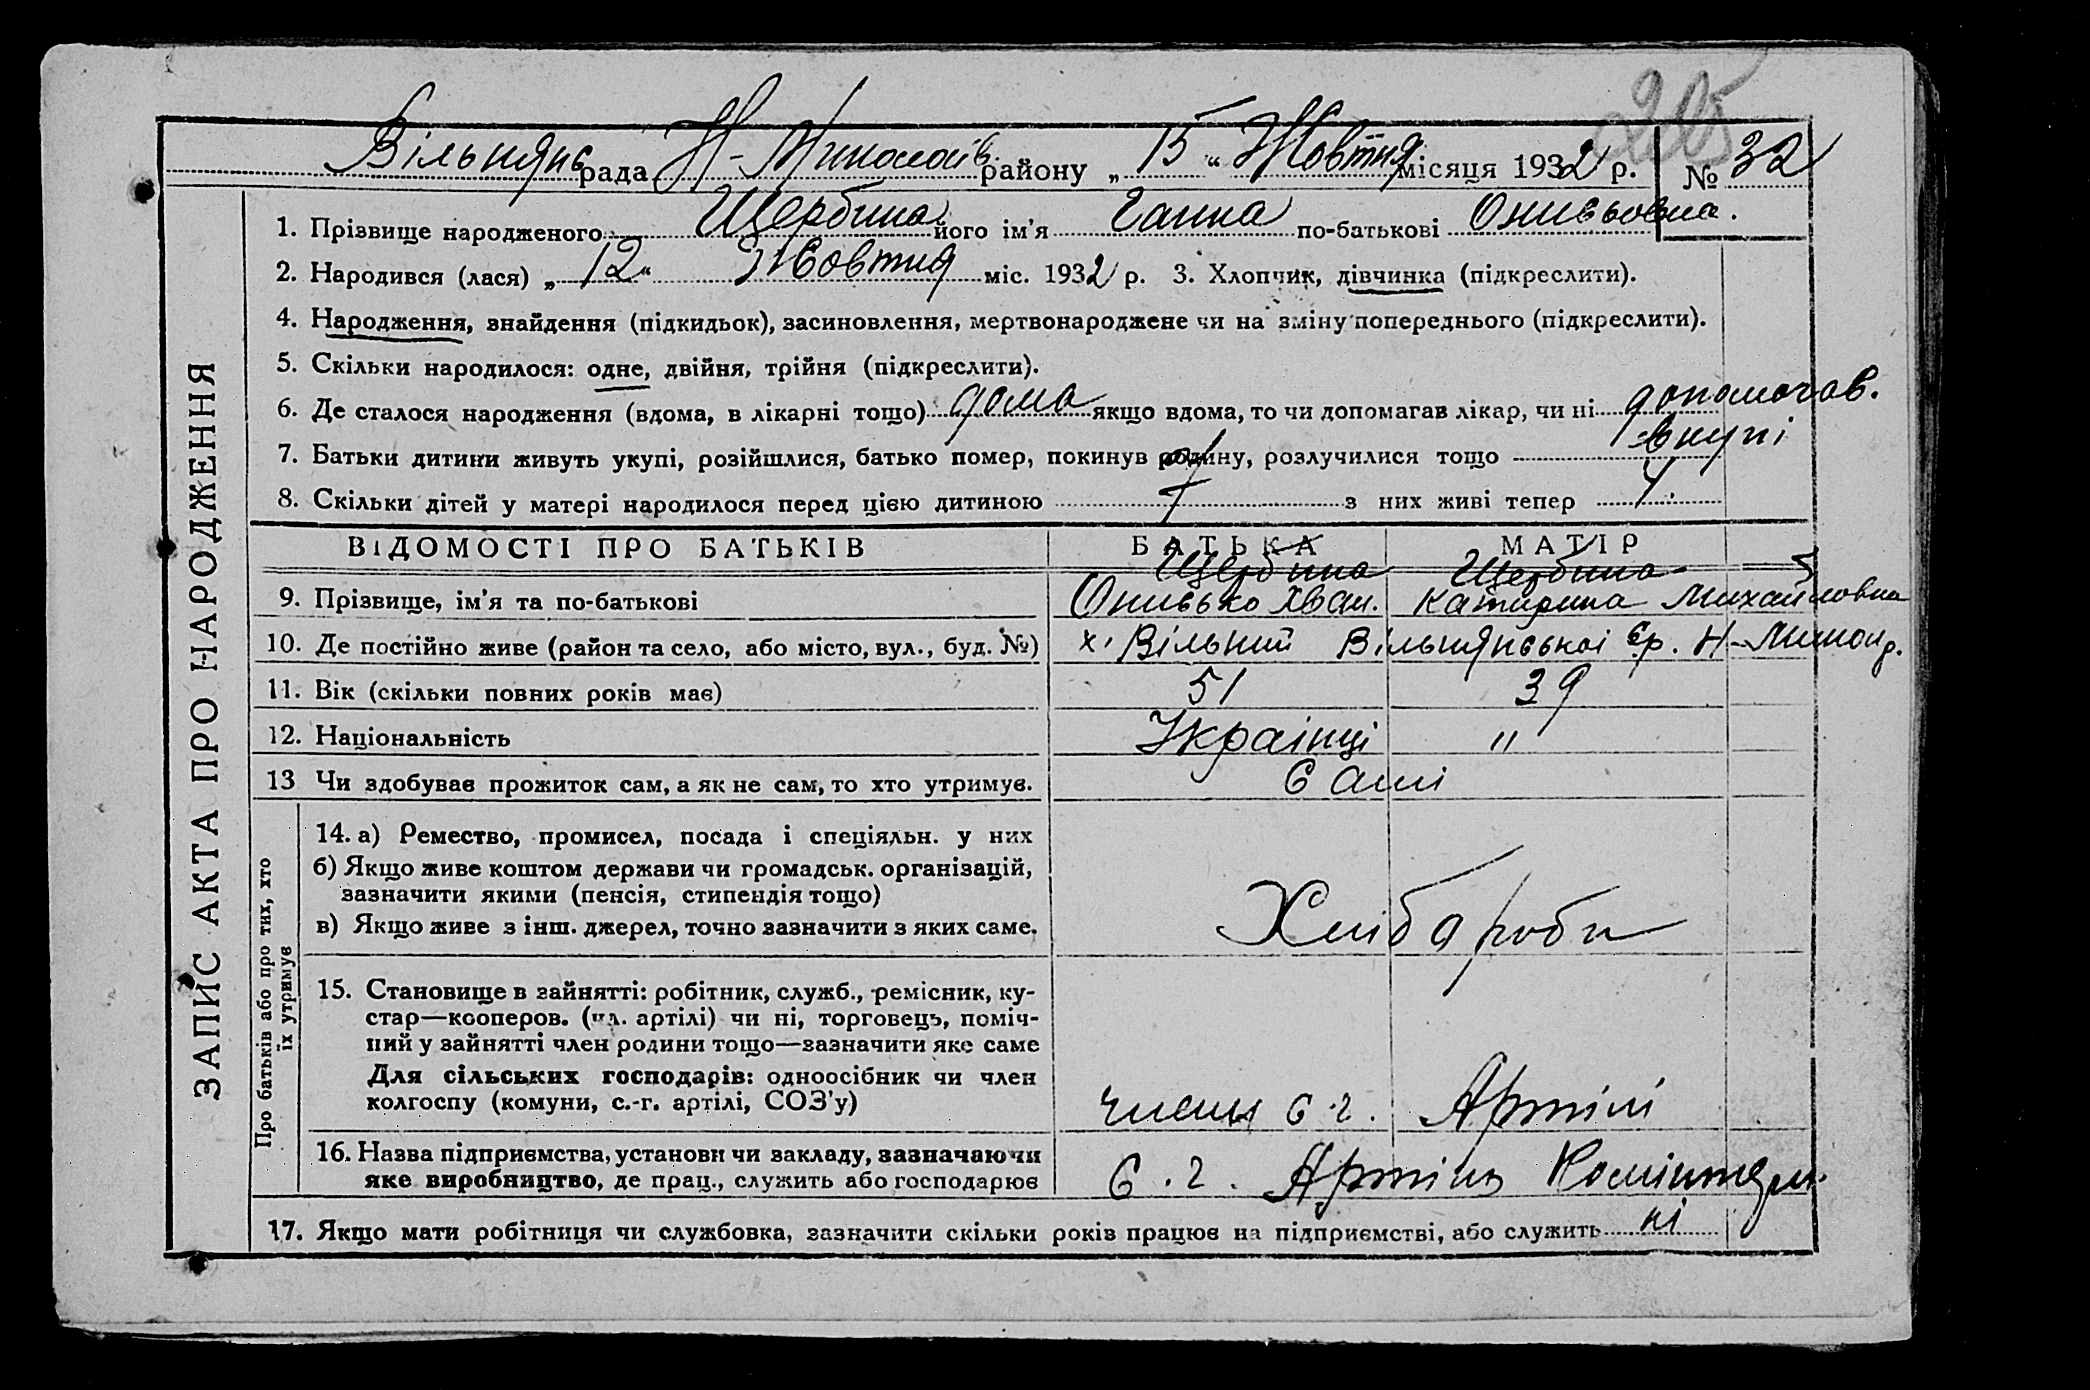 265
Вільнянс рада Н-Миколаїв. району „ 15 “ Жовтня місяця 1932 р. № 32
1. Прізвище народженого Щербина його ім'я Ганна по-батькові Онисьовна.
2. Народився (лася) „ 12 “ Жовтня міс. 1932 р. 3. Хлопчик, дівчинка (підкреслити).
4. Народження, знайдення (підкидьок), засиновлення, мертвонароджене чи на зміну попереднього (підкреслити).
5. Скільки народилося: одне, двійня, трійня (підкреслити).
6. Де сталося народження (вдома, в лікарні тощо) дома якщо вдома, то чи допомагав лікар, чи ні допомогав.
7. Батьки дитини живуть укупі, розійшлися, батько помер, покинув родину, розлучилися тощо вкупі
8. Скільки дітей у матері народилося перед цією дитиною 7 з них живі тепер 4.
ЗАПИС АКТА ПРО НАРОДЖЕННЯ
ВІДОМОСТІ ПРО БАТЬКІВ БАТЬКА МАТІР
Щербина Щербина
9. Прізвище, ім'я та по-батькові Онисько Іван. Катирина Михайловна
10. Де постійно живе (район та село, або місто, вул., буд. №) х. Вільний Вільнянської с.р. Н-Микол р.
11. Вік (скільки повних років має) 51 39
12. Національність Українці "
13 Чи здобуває прожиток сам, а як не сам, то хто утримує. Самі
Про батьків або про тих, хто
їх утримує
14. а) Ремество, промисел, посада і спеціяльн. у них
б) Якщо живе коштом держави чи громадськ. організацій,
зазначити якими (пенсія, стипендія тощо)
в) Якщо живе з інш. джерел, точно зазначити з яких саме. Хлібороби
15. Становище в зайнятті: робітник, служб., ремісник, ку-
стар—кооперов. (чл. артілі) чи ні, торговець, поміч-
ний у зайнятті член родини тощо—зазначити яке саме
Для сільських господарів: одноосібник чи член
колгоспу (комуни, с.-г. артілі, СОЗ'у) члени с.г. Артілі
16. Назва підприємства, установи чи закладу, зазначаючи
яке виробництво, де прац., служить або господарює С.г. Артіль Комінтерн.
17. Якщо мати робітниця чи службовка, зазначити скільки років працює на підприємстві, або служить ні